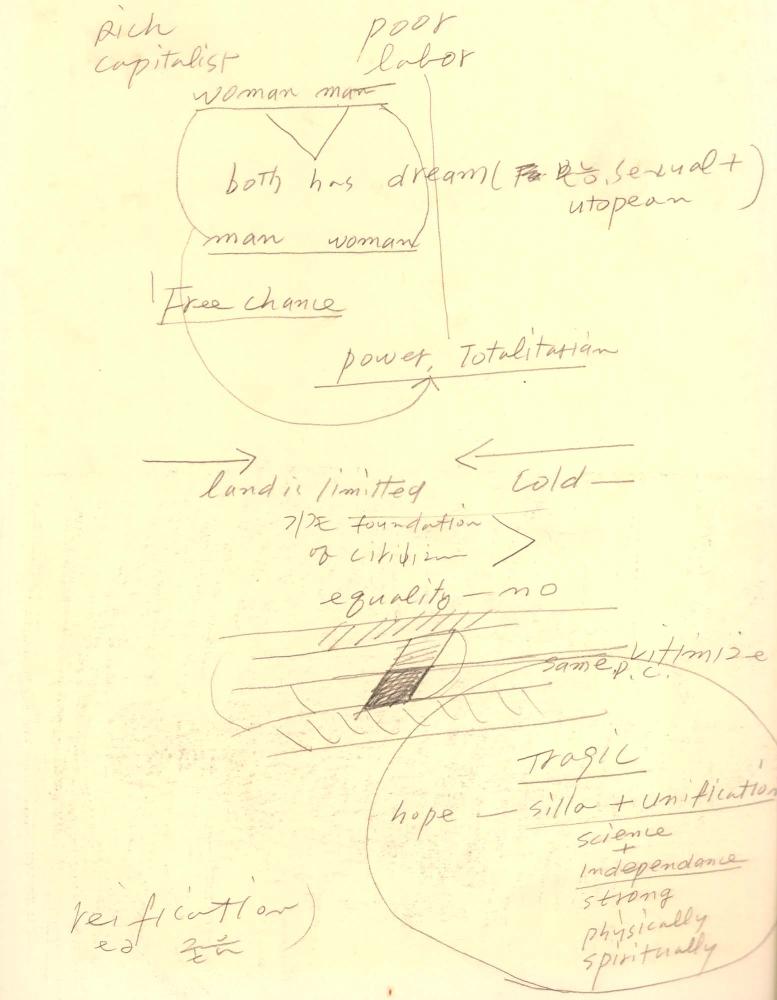 Rich
capitalist
poor
labor
woman man
both has dream( 본능, sexual +
utopean )
man woman
Free chance
power, Totalitarian
land is limitted
cold —
기본 foundation
of
equality — no
same P.C.
vitimize
Tragic
hope — silla + unification
science
+
independance
strong
physically
spiritually
reification )
ed